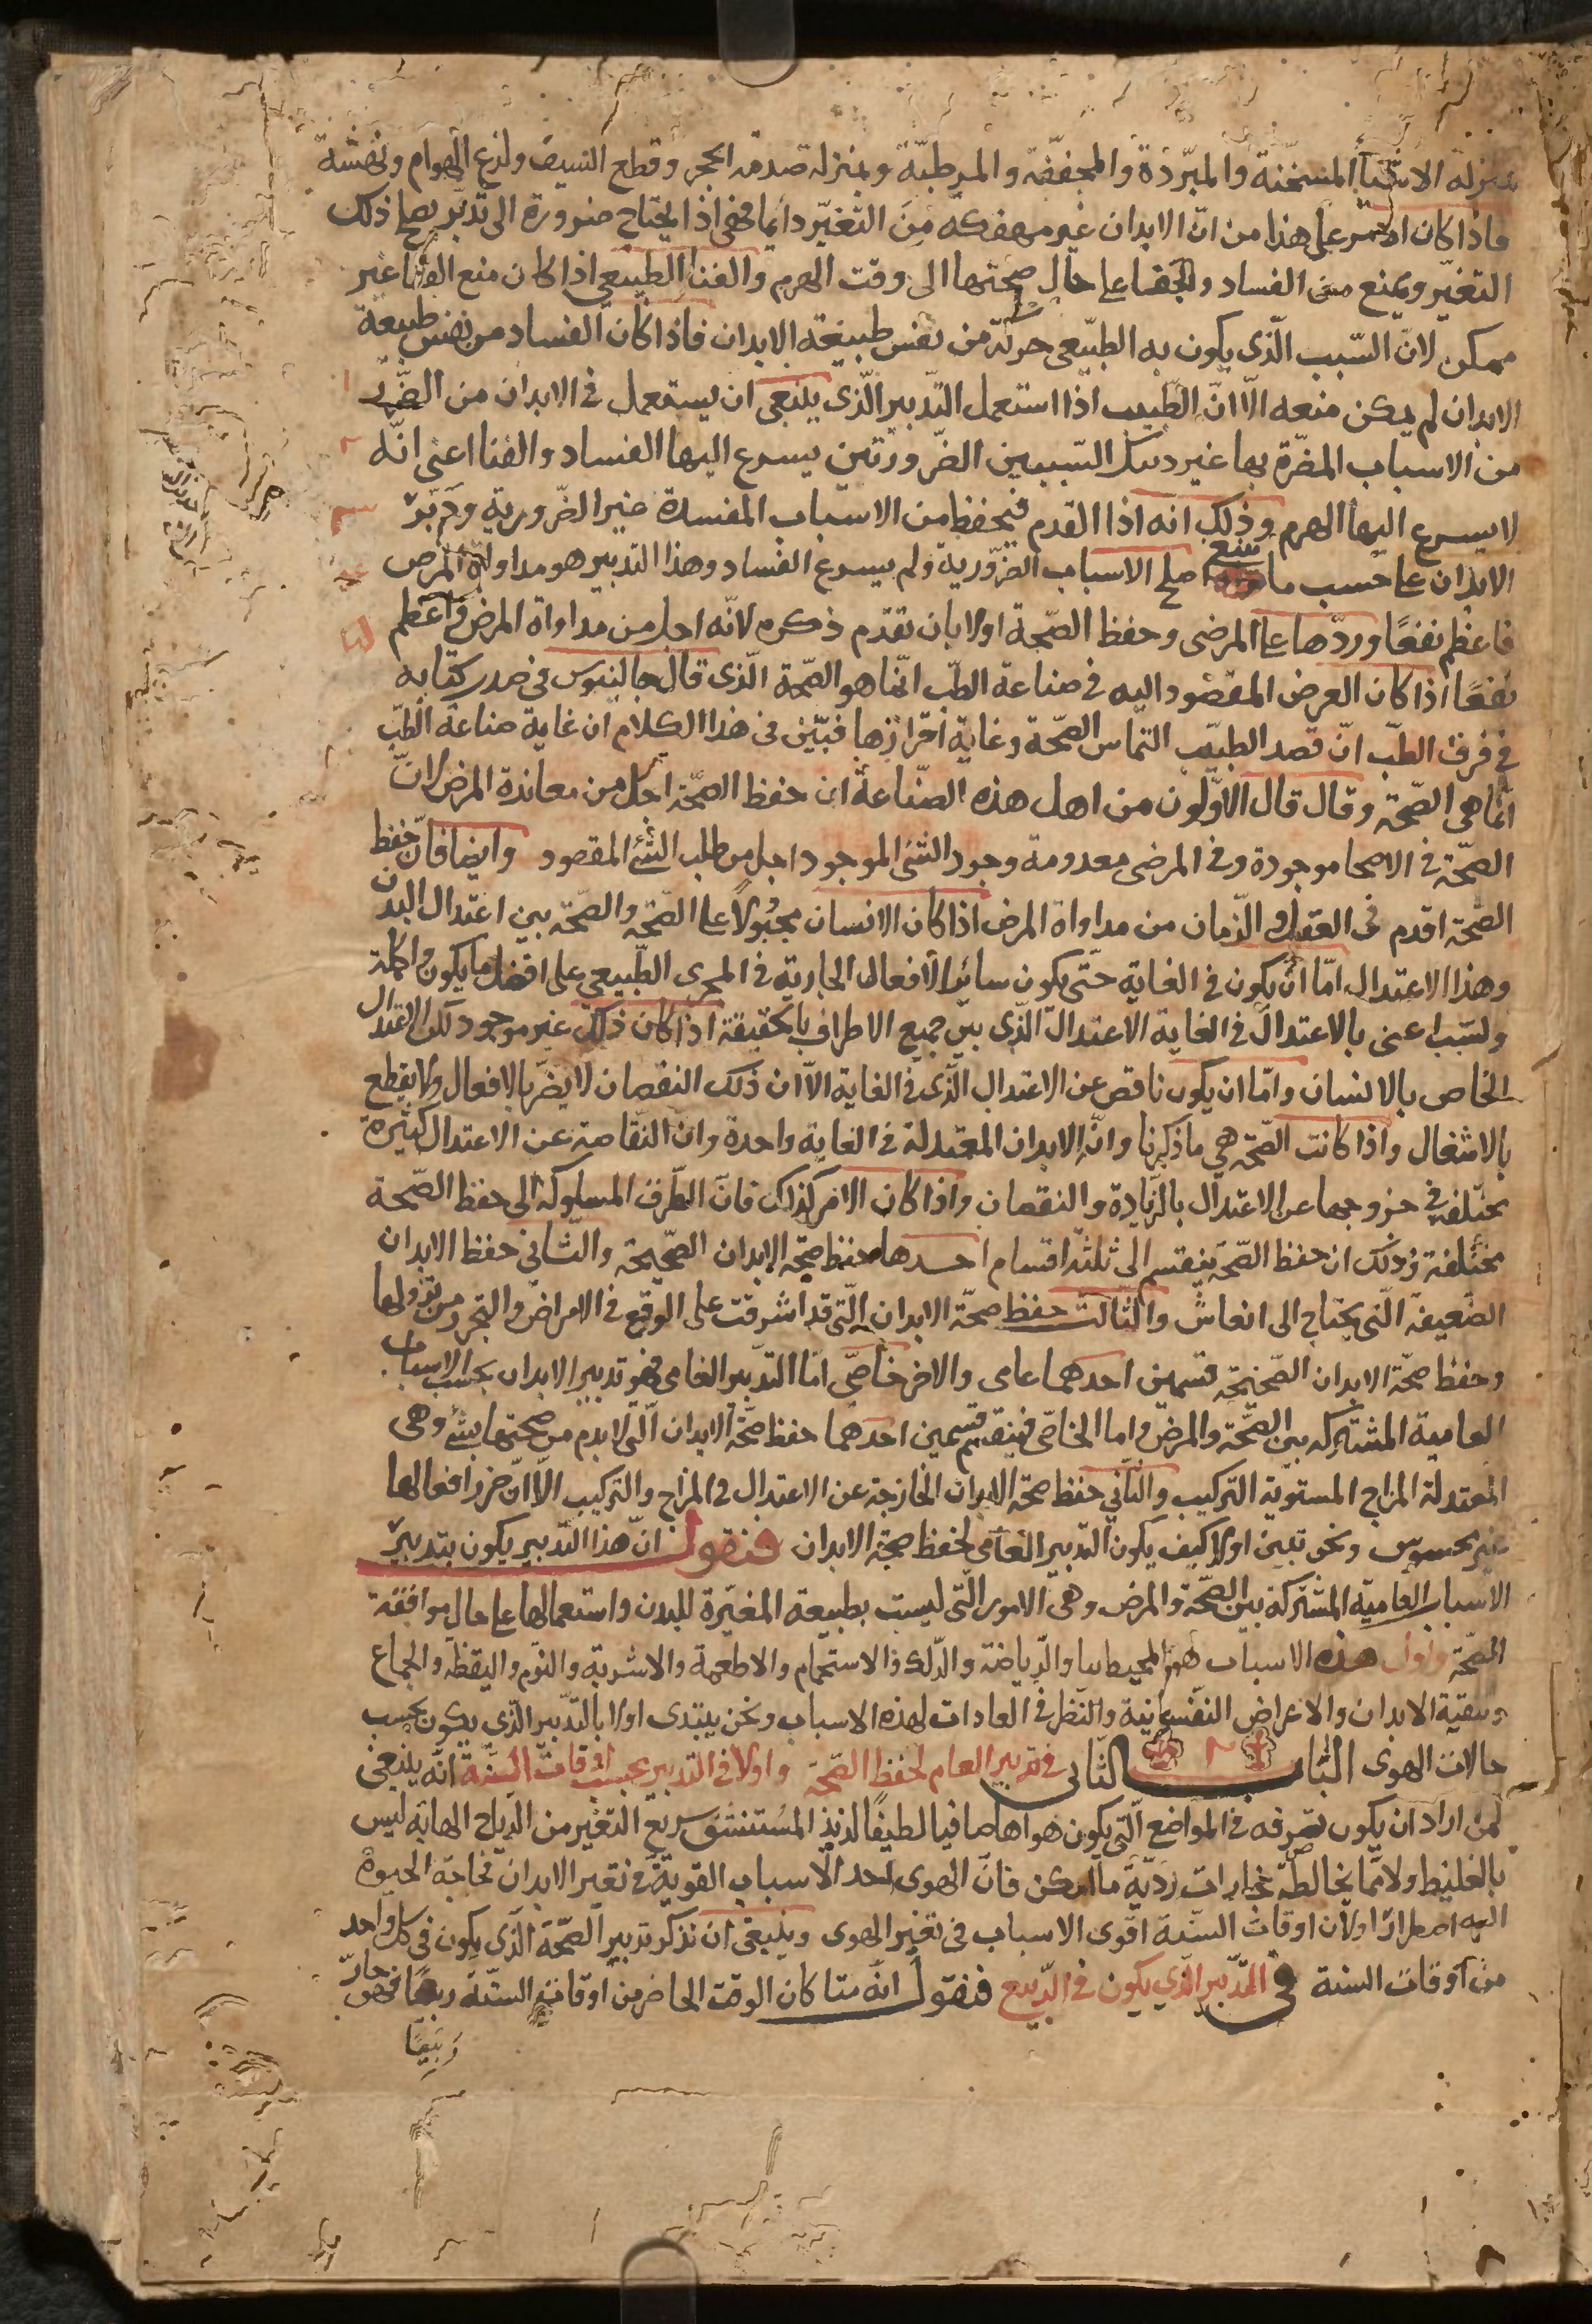 بمنزلة الاشيآ المسخّنة والمبرّدة والمجفّفة والمرطبّة وبمنزلة صدمة الحجر وقطع السيف ولذع الهوام ونهشه
فاذا كان الامر على هذا من انّ الابدان غير منفكه من التغيّر دايما فهى اذا يحتاج ضرورة الى تدبّر يصلح ذلك
التغيّر ويمنع من الفساد ولحفظها على حال صحتها الى وقت الهرم والفنا الطبيعى اذا كان منع الفنا غير
ممكن لانّ السّبب الّذى يكون به الطبّيعى حركة من نفس طبيعة الابدان فاذا كان الفساد من نفس طبيعة
الابدان لم يمكن منعه الاّ انّ الطّبيب اذا استعمل التّدبير الّذى ينبغى ان يستعمل فى الابدان من الضّرر
من الاسباب المضرّة بها غير السّببين الضّرورتين يسرع اليها الفساد والفنا اعنى انّه
لا يسرع اليها الهرم وذلك انه اذا القدم فيحفظ من الاسباب المفسدة غير الضّرورية ودَبّر
الابدان على حسب ما ينبغ اصلح الاسباب الضّرورية ولم يسرع الفساد وهذا التدبير هو مداواة المرض
فاعظم نفعًا وردّها على المرضى وحفظ الصّحة اولا بان تقدّم ذكره لانّه اجل من مداواة المرض واعظم
نفعًا اذا كان العرض المقصود اليه فى صناعة الطبّ انّما هو الصّحة الّذى قال جالينوس فى صدر كتابه
فى فرق الطبّ انّ قصد الطبيّب التماس الصّحّة وغاية احرازها فبيّن فى هذا الكلام ان غاية صناعة الطبّ
انّما هى الصّحّة وقال قال الاوّلون من اهل هذه الصّناعة ان حفظ الصّحّة اجل من معاندة المرض لانّ
الصحّة فى الاصحا موجودة وفى المرضى معدومة وجود الشئ الموجود اجل من طلب الشّئ المقصود وايضا فانّ حفظ
الصّحّة اقدم فى العقل والزّمان من مداواة المرض اذا كان الانسان مجبُولاً على الصّحّة والصّحّة بين اعتدال البدن
وهذا الاعتدال امّا ان يكون فى الغاية حتّى يكون سائر الافعال الجارية فى المجرى الطّبيعى على افضل ما يكون واكمله
ولست اعنى بالاعتدال فى الغاية الاعتدال الّذى بين جميع الاطراف بالحقيقة اذا كان ذلك غير موجود لكن الاعتدال
الخاص بالانسان وامّا ان يكون ناقص عن الاعتدال الّذى فى الغاية الاّ ان ذلك النقصان لا يضرّ بالافعال ولا يقطع
بالاشغال واذا كانت الصّحّة هى ما ذكرنا وانّ الابدان المعتدلة فى الغاية واحدة وان النّقاصة عن الاعتدال كثيرة
مختلفة فى خروجها عن الاعتدال بالزّيادة والنقصان واذا كان الامر كذلك فانّ الطّرق المسلوكه الى حفظ الصّحة
مختلفة وذلك ان حفظ الصّحّة ينقسم الى ثلثة اقسام احدها حفظ صحّة الابدان الصّحيحة والثّانى حفظ الابدان
الضّعيفة الّتى يحتاج الى انعاش والثّالث حفظ صحّة الابدان الّتى قد اشرفت على الوقع فى الامراض والتحرز من نزولها
وحفظ صحّة الابدان الصّحيحة قسمين احدهما عامى والاخر خاصّى امّا التّدبير العامى فهو تدبير الابدان بحسب الاسباب
العامية المشتركه بين الصّحّة والمرض واما الخاصّى فينقسم قسمين احدهما حفظ صحّة الابدان الّتى لا يذم من صحتها بشئ وهى
المعتدلة المزاج المستوية التركيب والثّانى حفظ صحة الابدان الخارجة عن الاعتدال فى المزاج والتركيب الاّ انّ ضرر افعالها
غير محسوس ونحن نبين اولا كيف يكون التّدبير العامى لحفظ صحة الابدان فنقول انّ هذا التّدبير يكون بتدبير
الاسباب العاميّة المشتركة بين الصّحّة والمرض وهى الامور الّتى ليست بطبيعة المغيّرة للبدن واستعمالها على حال موافقة
الصّحّة واول هذه الاسباب هو المحيط بنا والرّياضة والدّلك والاستحمام والاطعمة والاشربة والنّوم واليقظة والجماع
وتنقية الابدان والاعراض النّفسانية والنّظر فى العادات لهذه الاسباب ونحن نبتدى اولا بالتّدبّير الّذى يكون بحسب
حالات الهوى الباب الثّانى فى تدبير العام لحفظ الصّحّة واولا فى التدبير بحسب اوقات السّنة انّه ينبغى
لمن اراد ان يكون تصرّفه فى المواضع الّتى يكون هواها صافيا لطيفًا لذيذ المُستنشق سريع التغيّر من الرّياح الهابّه ليس
بالغليظ ولا ممّا يخالطه بخارات رديّة ما امكن فانّ الهوى احد الاسباب القويّة فى تغير الابدان لحاجة الحيوة
اليه اضطرارا ولانّ اوقات السّنة اقوى الاسباب فى تغير الهوى وينبغى ان نذكر تدبير الصّحّة الّذى يكون فى كل واحد
من اوقات السّنة فى التّدبير الّذى يكون فى الرّبيع فنقول انّه متا كان الوقت الحاضر من اوقات السّنة ربيعًا فهو حارّ
رَبيعًا